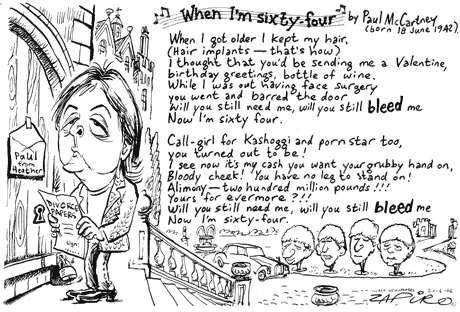 When I'm sixty-four
by Paul McCartney
(born 18 June 1942).
When I got older I kept my hair,
(Hair implants — that's how)
I thought that you'd be sending me a Valentine,
birthday greetings, bottle of wine.
While I was out having face surgery
you went and barred the door
Will you still need me, will you still bleed me
Now I'm sixty four.
Call-girl for Kashoggi and porn star too,
you turned out to be!
I see now it's my cash you want your grubby hand on,
Bloody cheek! You have no leg to stand on!
Alimony — two hundred million pounds !!!
Yours for evermore ?!!
Will you still need me, will you still bleed me
Now I'm sixty-four.
Paul
from
Heather
DIVORCE
PAPERS
sign:
20-6-06
ZAPIRO